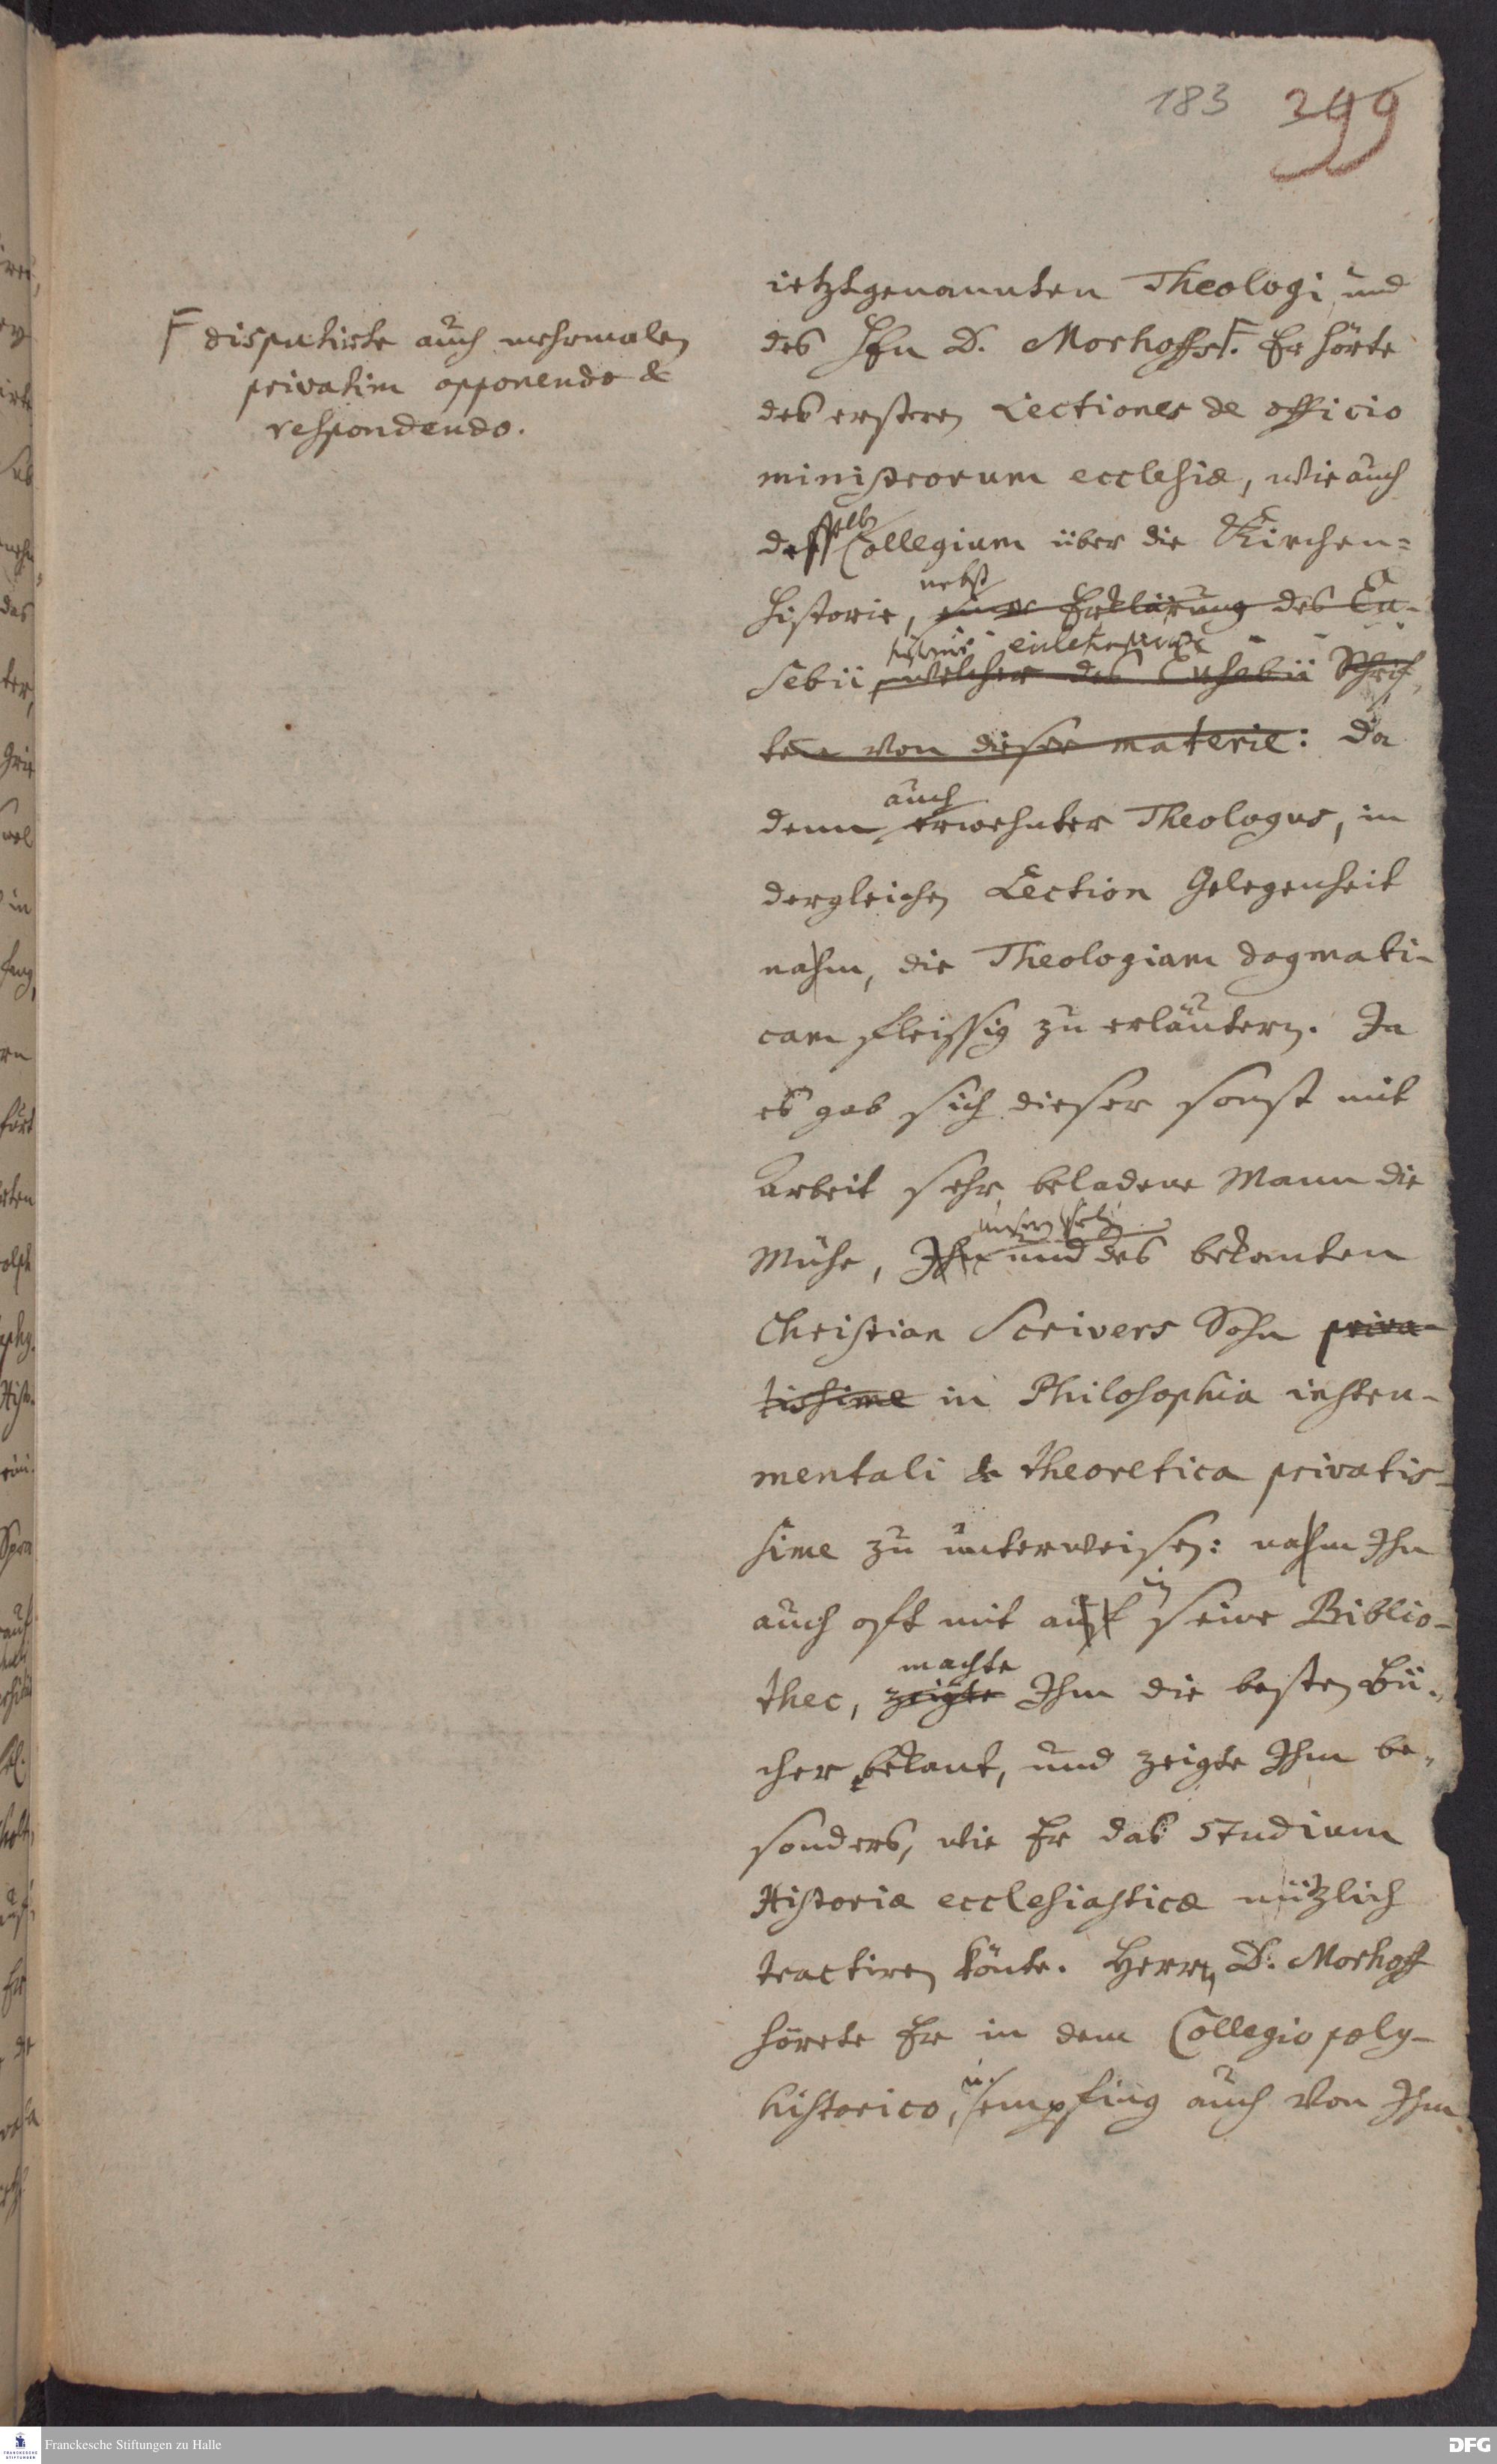 183 399
F disputirte auch mehrmalen
privatim opponendo &
respondendo.
ietztgenannten Theologi und
des Hrn D. Morhoffs F. Er hörte
des ersteren Lectiones de officio
ministrorum ecclesiæ, wie auch
desselben Collegium über die Kirchen-
historie, nebst einer Erklärung des Eu-
sebii, welcher des Eusebii Schrif-
ten von dieser materie: da
denn auch erwehnter Theologus, in
dergleichen Lection Gelegenheit
nahm, die Theologiam dogmati-
cam fleissig zu erläutern. Ja
es gab sich dieser sonst mit
Arbeit sehr beladene Mann die
Mühe, Ihn und des bekanten
Christian Scrivers Sohn priva-
tissime in Philosophia instru-
mentali & theoretica privatis-
sime zu unterweisen: nahm Ihn
auch oft mit auf in seine Biblio-
thec, zeigte machte Ihm die besten Bü-
cher bekant, und zeigte Ihm be-
sonders, wie Er das studium
Historiæ ecclesiasticæ nützlich
tractiren könte. Herrn D. Morhoff
hörete Er in dem Collegio poly-
historico, u. empfing auch von Ihm
Franckesche Stiftungen zu Halle
DFG